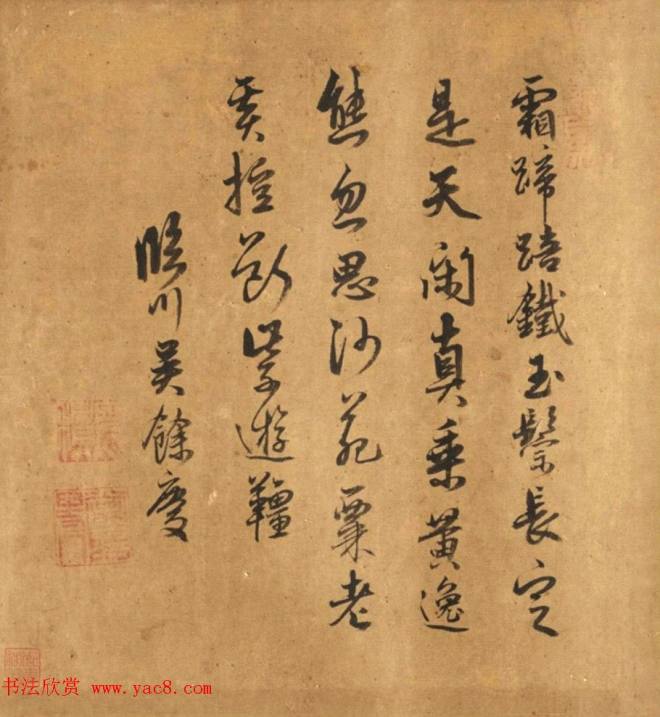 霜蹄踣鐵玉鬃長定
是天閑真乘黃逸
態忽思沙苑粟老
奚控斷紫遊韁
臨川吳餘慶
书法欣赏 www.yac8.com